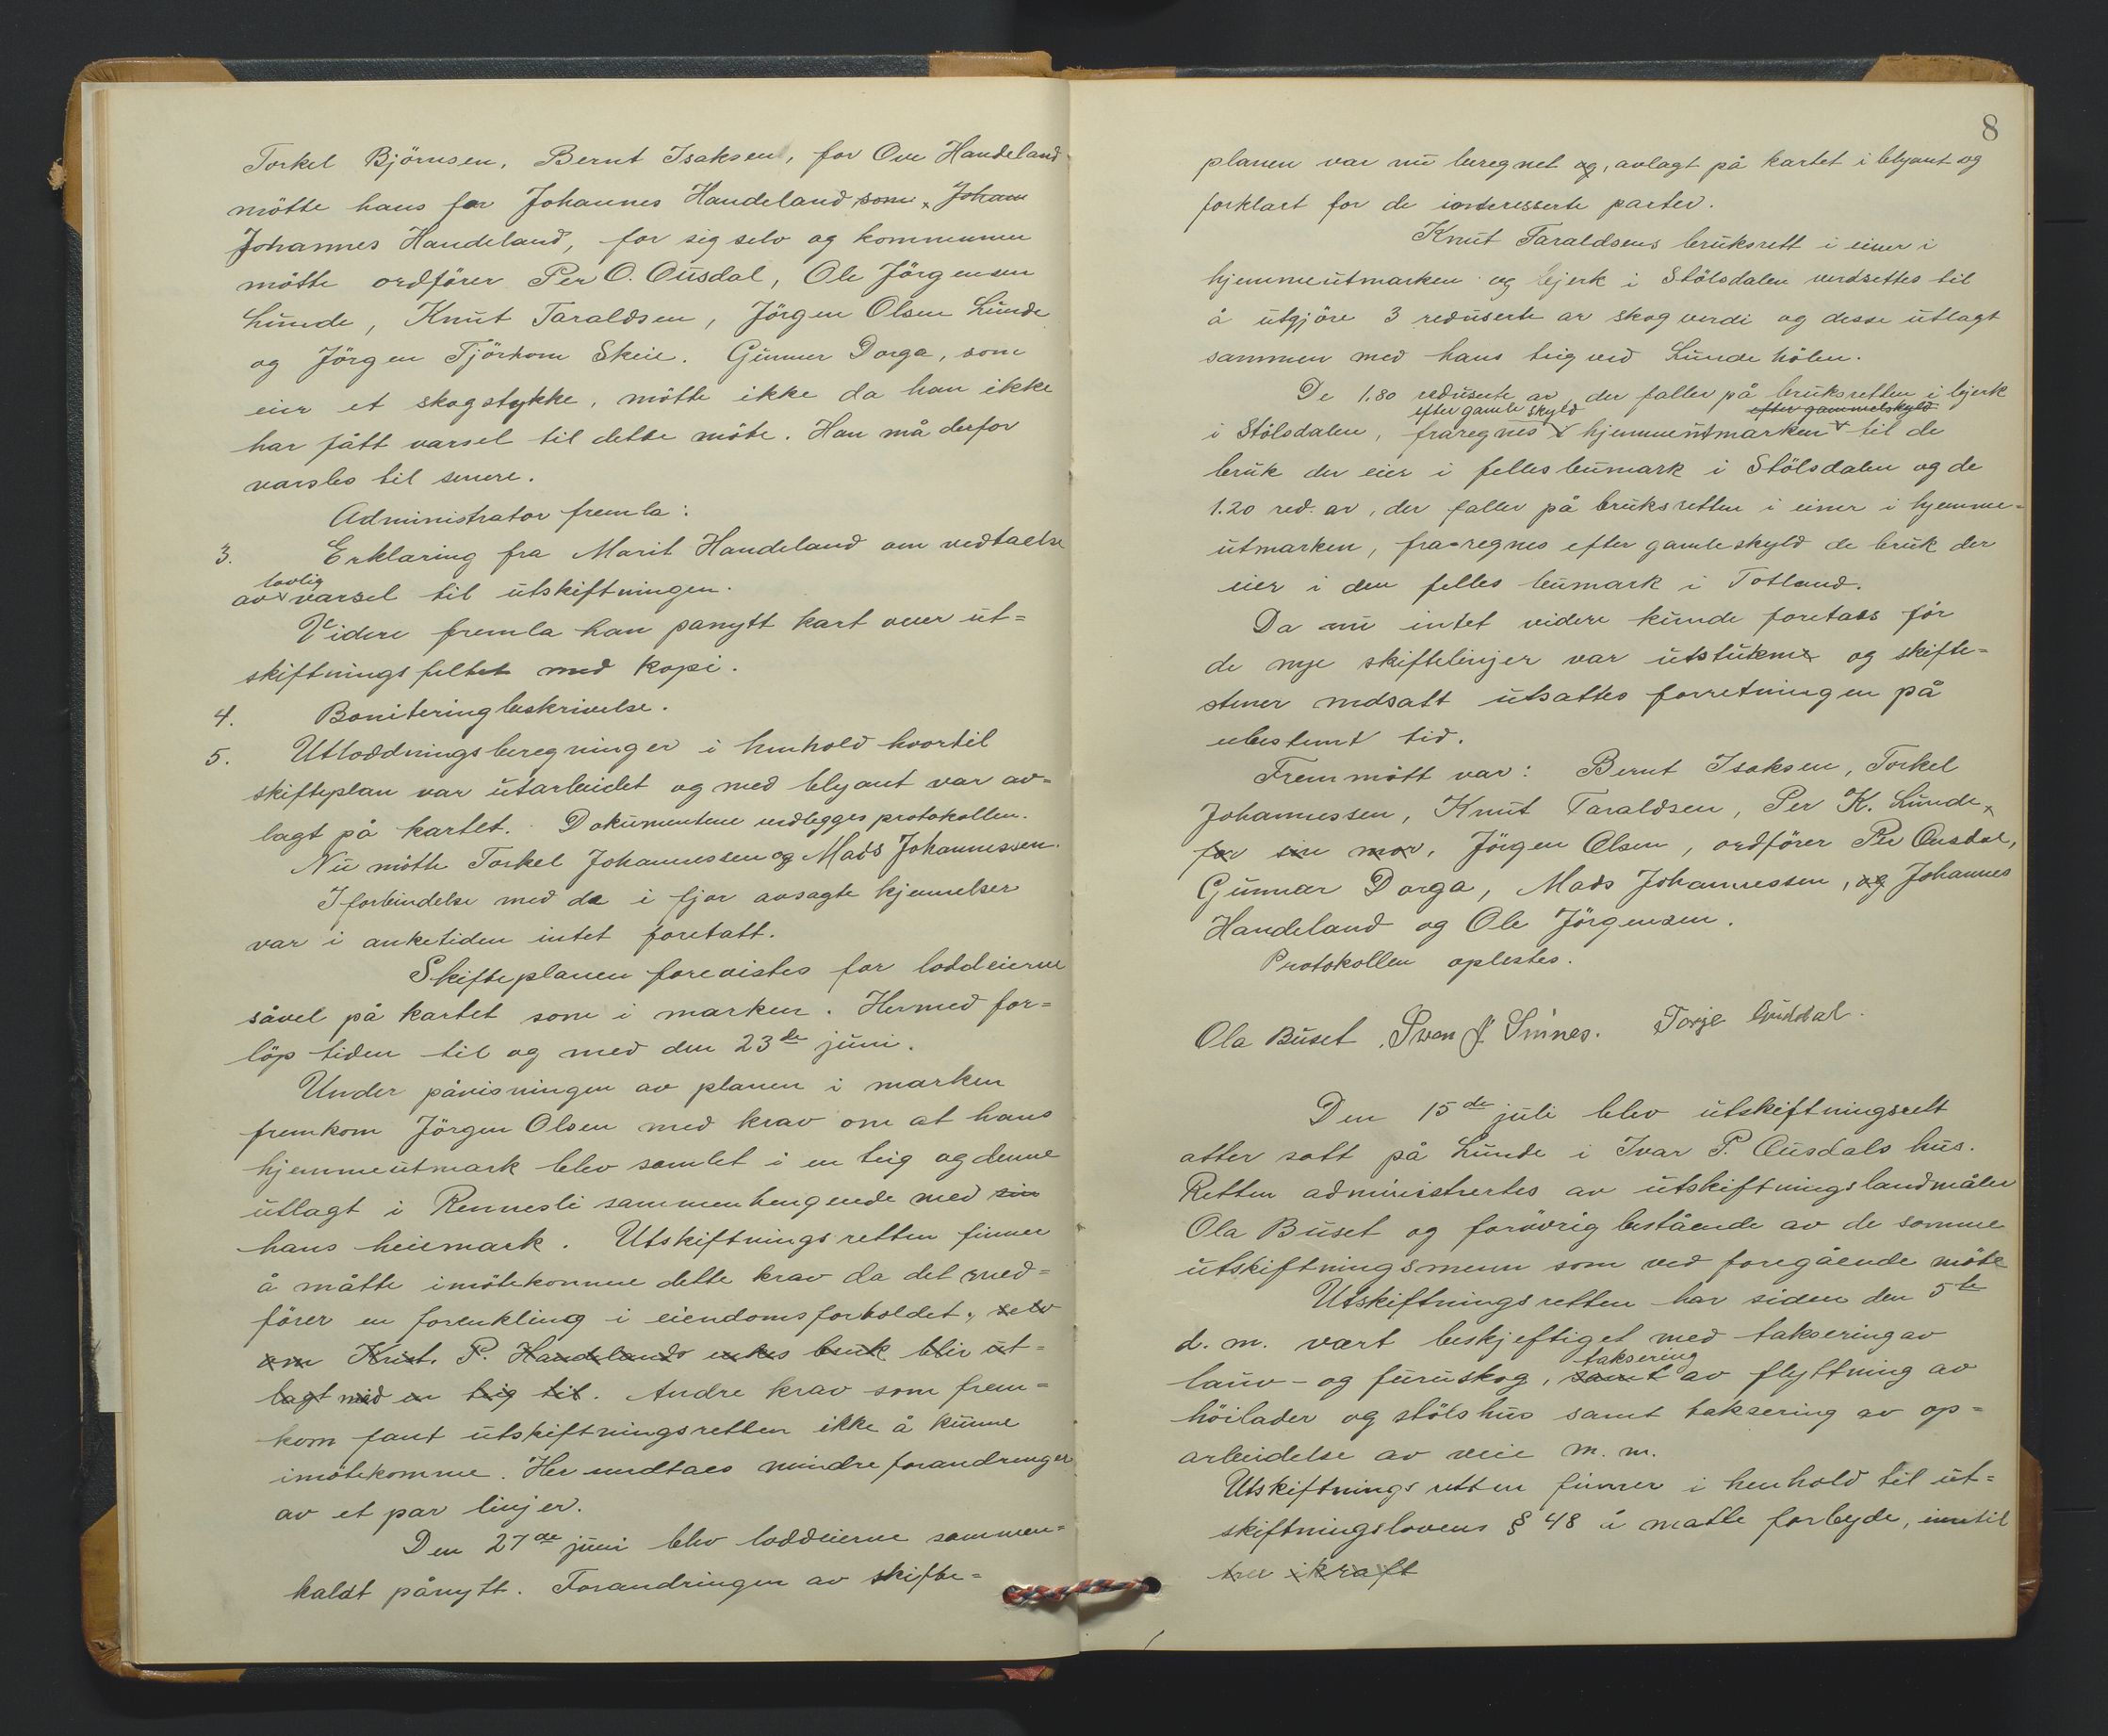 Torkel Björnsen, Bernt Isaksen, for Ove Handeland
mötte hans far Johannes Handeland som, Joham
Johannes Handeland, for sig selv og kommunen
mötte ordförer Per O. Ousdal, Ole Jörgensen
Lunde, Knut Taraldsen, Jörgen Olsen Lunde
og Jörgen Tjörhom Skeie. Gunner Dorga, som
eier et skogstykke, mötte ikke da han ikke
har fått varsel til dette möte. Han må derfor
varsles til senere.
Administrator fremla:
3. Erklæring fra Marit Handeland om vedtaelse
lovlig
av varsel til utskiftningen.
Videre fremla han panytt kart over ut=
skiftningsfeltet med kopi.
4. Boniteringbeskrivelse.
5. Utloddningsberegninger i henhold hvortil
skifteplan var utarbeidet og med blyant var av=
lagt på kartet. Dokumentene vedlegges protokollen.
Nu mötte Torkel Johannessen og Mads Johannessen.
I forbindelse med de i fjor avsagte kjennelser
var i anketiden intet foretatt.
Skifteplanen forevistes for loddeierne
såvel på kartet som i marken. Hermed for=
löp tiden til og med den 23de juni.
Under påvisningen av planen i marken
fremkom Jörgen Olsen med krav om at hans
hjemmeutmark blev samlet i en teig og denne
utlagt i Rennesli sammenhengende med sin
hans heiemark. Utskiftningsretten finner
å måtte imötekomme dette krav da det med=
förer en forenkling i eiendomsforholdet, selv
om Krist. P. Handelands enkes bruk blir ut=
lagt med en teig til. Andre krav som frem=
kom fant utskiftningsretten ikke å kunne
imötekomme. Her undtaes mindre forandringer
av et par linjer.
Den 27de juni blev loddeierne sammen=
kaldt pånytt. Forandringen av skifte=
8
planen var nu beregnet og, avlagt på kartet i blyant og
forklart for de interesserte parter.
Knut Taraldsens bruksrett i einer i
hjemmeutmarken og bjerk i Stölsdalen verdsettes til
å utgjöre 3 reduserte ar skogverdi og desse utlagt
sammen med hans teig ved Lunde hölen.
De 1.80 reduserte ar, der faller på bruksretten i bjerk
efter gamle skyld efter gammelskyld
i Stölsdalen, fraregnes i hjemmeutmarken til de
bruk der eier i felles beumark i Stölsdalen og de
1.20 red. ar, der faller på bruksretten i einer i hjemme=
utmarken, fra=regnes efter gamle skyld de bruk der
eier i den felles beumark i Totland.
Da nu intet videre kunde foretaes för
de nye skiftelinjer var utstukne og skifte=
stener nedsatt utsattes forretningen på
ubestemt tid.
Fremmött var: Bernt Isaksen, Torkel
Johannessen, Knut Taraldsen, Per K. Lunde,
for sin mor, Jörgen Olsen, ordförer Per Ousdal,
Gunnar Dorga, Mads Johannessen, og Johannes
Handeland og Ole Jörgensen.
Protokollen oplestes.
Ola Buset, Sven J. Sinnes. Torje Guddal.
Den 15de juli blev utskiftningsrett
atter satt på Lunde i Ivar P. Ousdals hus.
Retten administrertes av utskiftningslandmåler
Ola Buset og forövrig bestående av de samme
utskiftningsmenn som ved foregående möte
Utskiftningsretten har siden den 5te
d. m. vært beskjeftiget med taksering av
taksering
lauv- og furuskog, samt av flyttning av
höilader og stölshus samt taksering av op=
arbeidelse av veie m. m.
Utskiftningsretten finner i henhold til ut=
skiftningslovens § 48 å måtte forbyde, inntil
tru ikraft